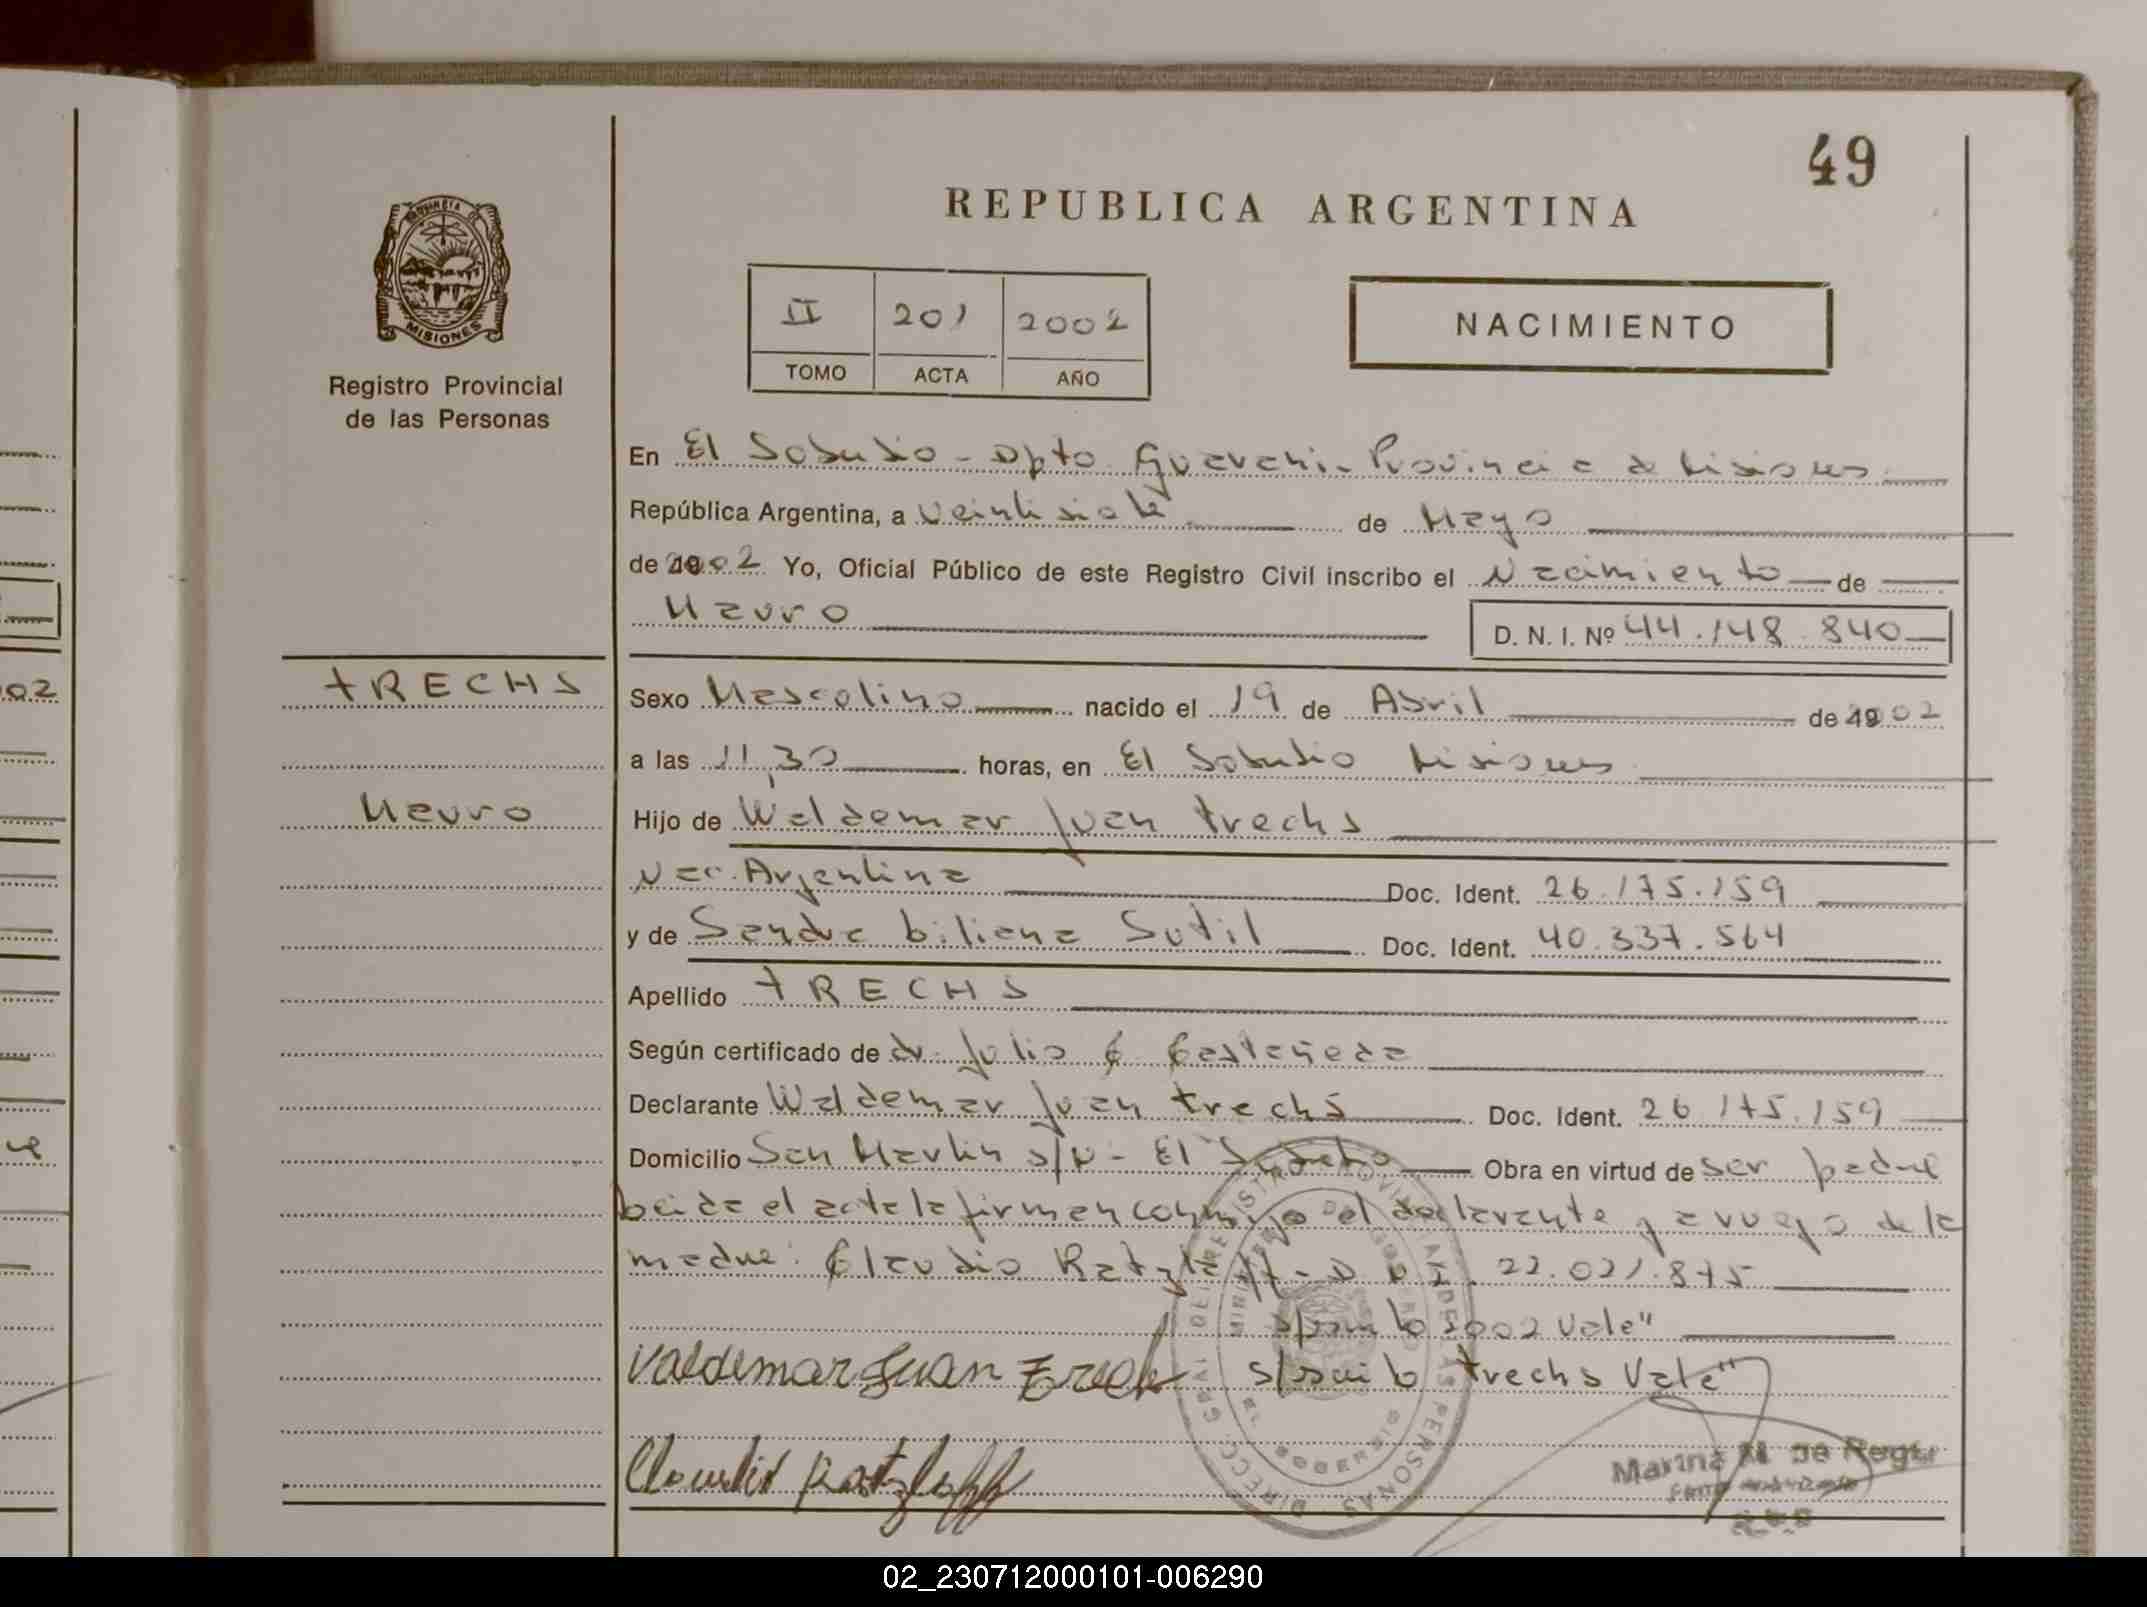 49
REPUBLICA ARGENTINA
PROVINCIA DE
MISIONES
Registro Provincial
de las Personas
II 201 2002
TOMO ACTA AÑO
NACIMIENTO
En El Soberbio - Dpto Guarani - Provincia de Misiones
República Argentina, a veintisiete de Mayo
de 2002 Yo, Oficial Público de este Registro Civil inscribo el Nacimiento de
Mauro
D. N. I. Nº 44.148.840
TRECHS
Sexo Masculino nacido el 19 de Abril de 2002
a las 11,30 horas, en El Soberbio Misiones
Mauro
Hijo de Waldemar Juan Trechs
Nac. Argentina Doc. Ident. 26.175.159
y de Sandra Liliana Sutil Doc. Ident. 40.337.564
Apellido TRECHS
Según certificado de Dr. Julio C Castañeda
Declarante Waldemar Juan Trechs Doc. Ident. 26.175.159
Domicilio San Martin s/N - El Soberbio Obra en virtud de ser padre
Leida el acta la firman conmigo el declarante y a ruego de la
madre: Claudio Ratzlaff - D.N.I. 22.021.875
2002 Vale"
Valdemar Juan Trech Trechs Vale"
Claudio Ratzlaff
Marina
02_230712000101-006290